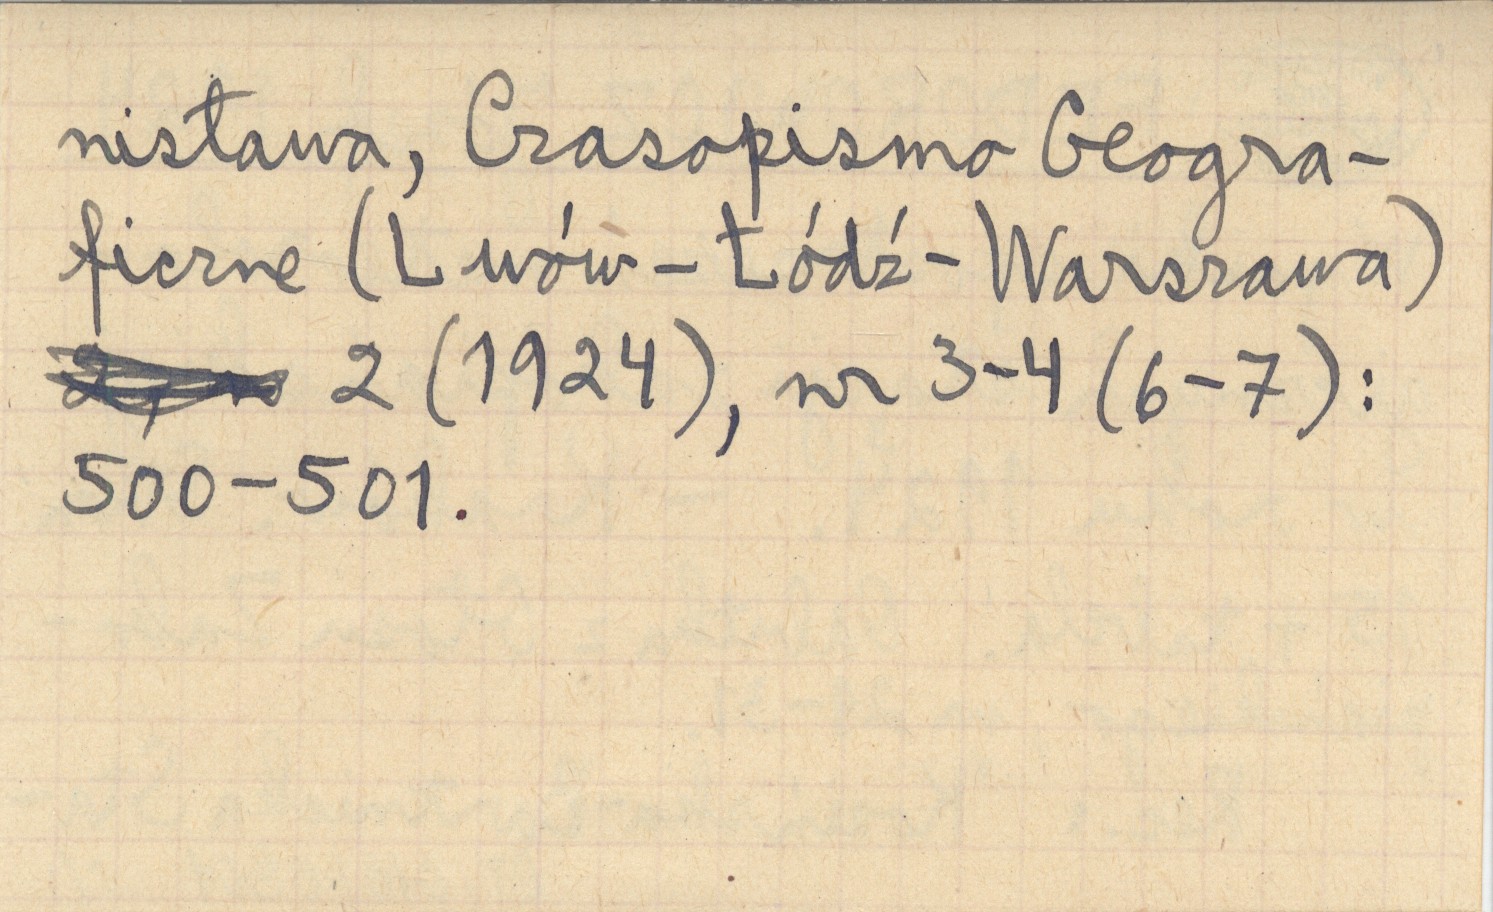 nisława, Czasopismo Geogra-
ficzne (Lwów - Łódź - Warszawa)
2 (1924), nr 3-4 (6-7):
500-501.